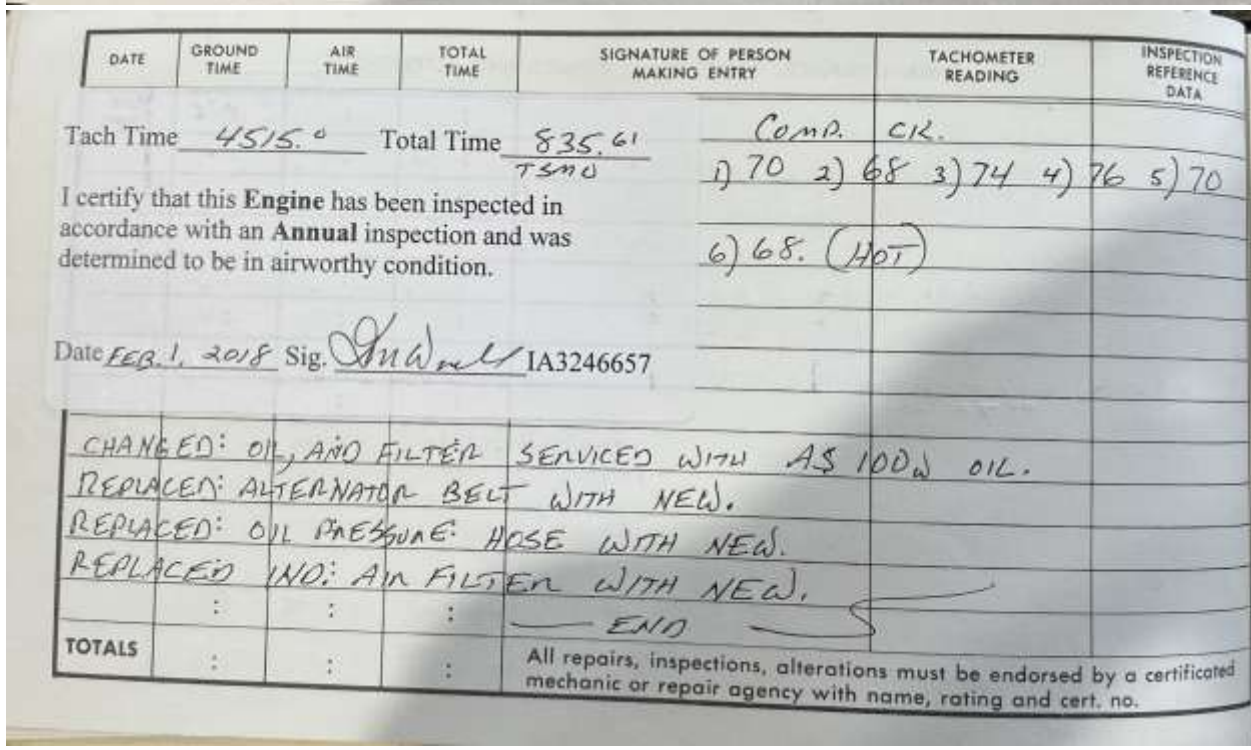 DATE GROUND TIME AIR TIME TOTAL TIME SIGNATURE OF PERSON MAKING ENTRY TACHOMETER READING INSPECTION REFERENCE DATA
Tach Time 4515.0 Total Time 835.61
TSMO
COMP. CK.
1) 70 2) 68 3) 74 4) 76 5) 70
6) 68. (HOT)
I certify that this Engine has been inspected in
accordance with an Annual inspection and was
determined to be in airworthy condition.
Date FEB. 1, 2018 Sig. IA3246657
CHANGED: OIL, AND FILTER SERVICED WITH AS 100W OIL.
REPLACED: ALTERNATOR BELT WITH NEW.
REPLACED: OIL PRESSURE: HOSE WITH NEW.
REPLACED IND: AIR FILTER WITH NEW.
: : : END
TOTALS : : : All repairs, inspections, alterations must be endorsed by a certificated
mechanic or repair agency with name, rating and cert. no.